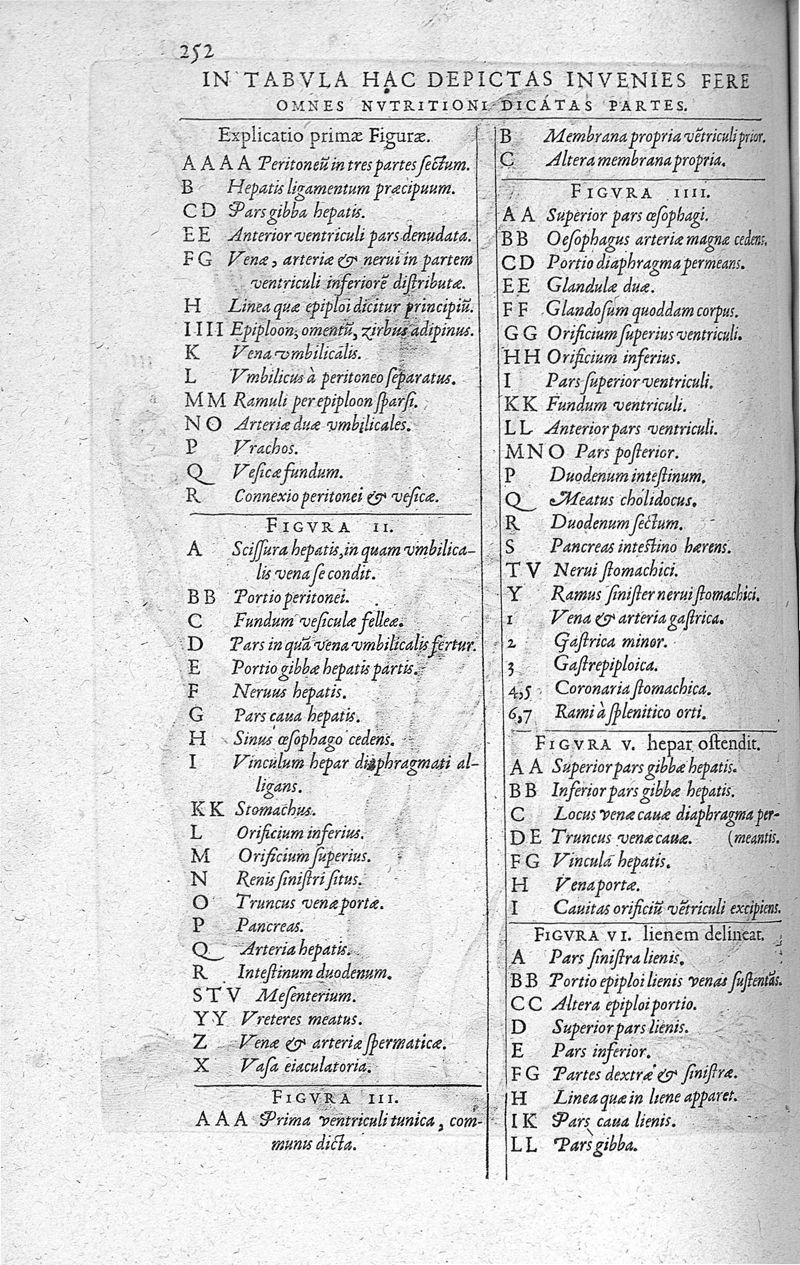 252
IN TABVLA HAC DEPICTAS INVENIES FERE
OMNES NVTRITIONI DICATAS PARTES.
Explicatio primæ Figuræ.
A A A A Peritoneũ in tres partes ſectum.
B Hepatis ligamentum præcipuum.
C D Pars gibba hepatis.
E E Anterior ventriculi pars denudata.
F G Venæ, arteriæ & nerui in partem
ventriculi inferiorẽ diſtributæ.
H Linea quæ epiploi dicitur principiũ.
I I I I Epiploon, omentũ, zirbus adipinus.
K Vena vmbilicalis.
L Vmbilicus à peritoneo ſeparatus.
M M Ramuli per epiploon ſparſi.
N O Arteriæ duæ vmbilicales.
P Vrachos.
Q Veſicæ fundum.
R Connexio peritonei & veſicæ.
FIGVRA II.
A Sciſſura hepatis, in quam vmbilica-
lis vena ſe condit.
B B Portio peritonei.
C Fundum veſiculæ felleæ.
D Pars in quã vena vmbilicalis fertur.
E Portio gibbæ hepatis partis.
F Neruus hepatis.
G Pars caua hepatis.
H Sinus œſophago cedens.
I Vinculum hepar diaphragmati al-
ligans.
K K Stomachus.
L Orificium inferius.
M Orificium ſuperius.
N Renis ſiniſtri ſitus.
O Truncus venæ portæ.
P Pancreas.
Q Arteria hepatis.
R Inteſtinum duodenum.
S T V Meſenterium.
Y Y Vreteres meatus.
Z Venæ & arteriæ ſpermaticæ.
X Vaſa eiaculatoria.
FIGVRA III.
A A A Prima ventriculi tunica, com-
munis dicta.
B Membrana propria vẽtriculi prior.
C Altera membrana propria.
FIGVRA IIII.
A A Superior pars œſophagi.
B B Oeſophagus arteriæ magnæ cedens.
C D Portio diaphragma permeans.
E E Glandulæ duæ.
F F Glandoſum quoddam corpus.
G G Orificium ſuperius ventriculi.
H H Orificium inferius.
I Pars ſuperior ventriculi.
K K Fundum ventriculi.
L L Anterior pars ventriculi.
M N O Pars poſterior.
P Duodenum inteſtinum.
Q Meatus cholidocus.
R Duodenum ſectum.
S Pancreas inteſtino hærens.
T V Nerui ſtomachici.
Y Ramus ſiniſter nerui ſtomachici.
1 Vena & arteria gaſtrica.
2 Gaſtrica minor.
3 Gaſtrepiploica.
4,5 Coronaria ſtomachica.
6,7 Rami à ſplenitico orti.
FIGVRA V. hepar oſtendit.
A A Superior pars gibbæ hepatis.
B B Inferior pars gibbæ hepatis.
C Locus venæ cauæ diaphragma per-
D E Truncus venæ cauæ. (meantis.
F G Vincula hepatis.
H Vena portæ.
I Cauitas orificiũ vẽtriculi excipiens.
FIGVRA VI. lienem delineat.
A Pars ſiniſtra lienis.
B B Portio epiploi lienis venas ſuſtentãs.
C C Altera epiploi portio.
D Superior pars lienis.
E Pars inferior.
F G Partes dextræ & ſiniſtræ.
H Linea quæ in liene apparet.
I K Pars caua lienis.
L L Pars gibba.